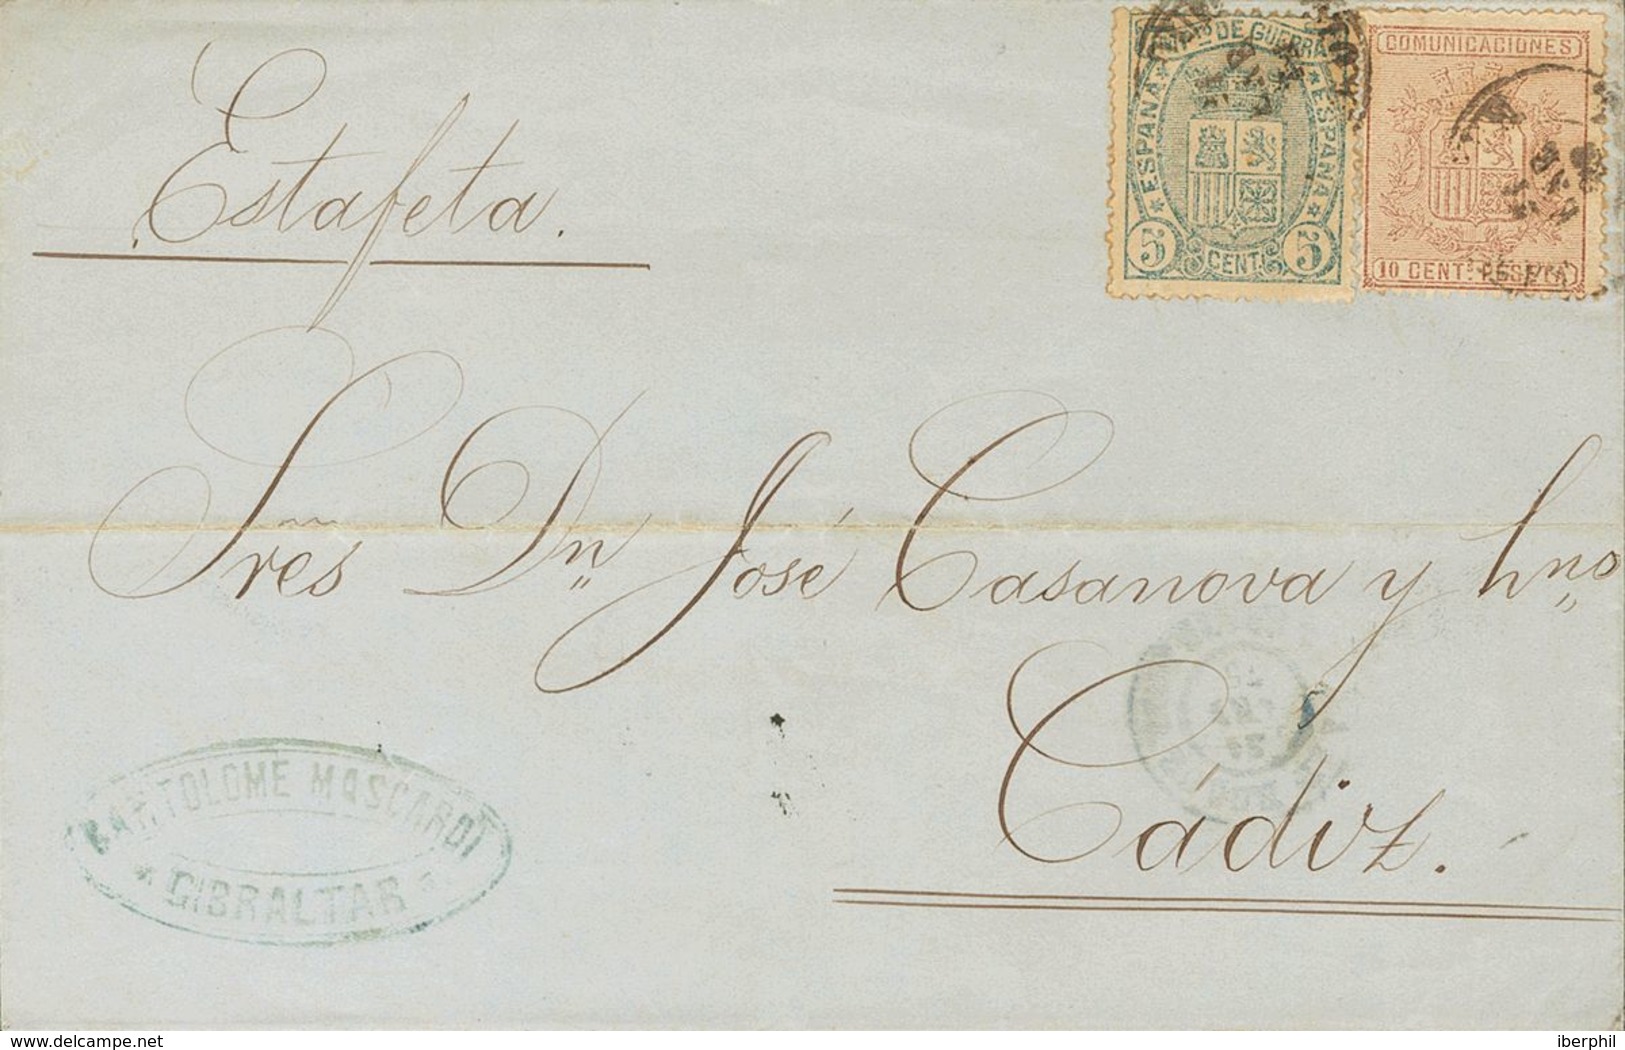 Estafeta.
IMP.to DE GUERRA
ESPAÑA
ESPAÑA
5 CENT. 5
COMUNICACIONES
10 CENT.s PESETA
Sres Dn José Casanova y hno
Cádiz.
BARTOLOME MASCARDI
GIBRALTAR
delcampe.net
iberphil